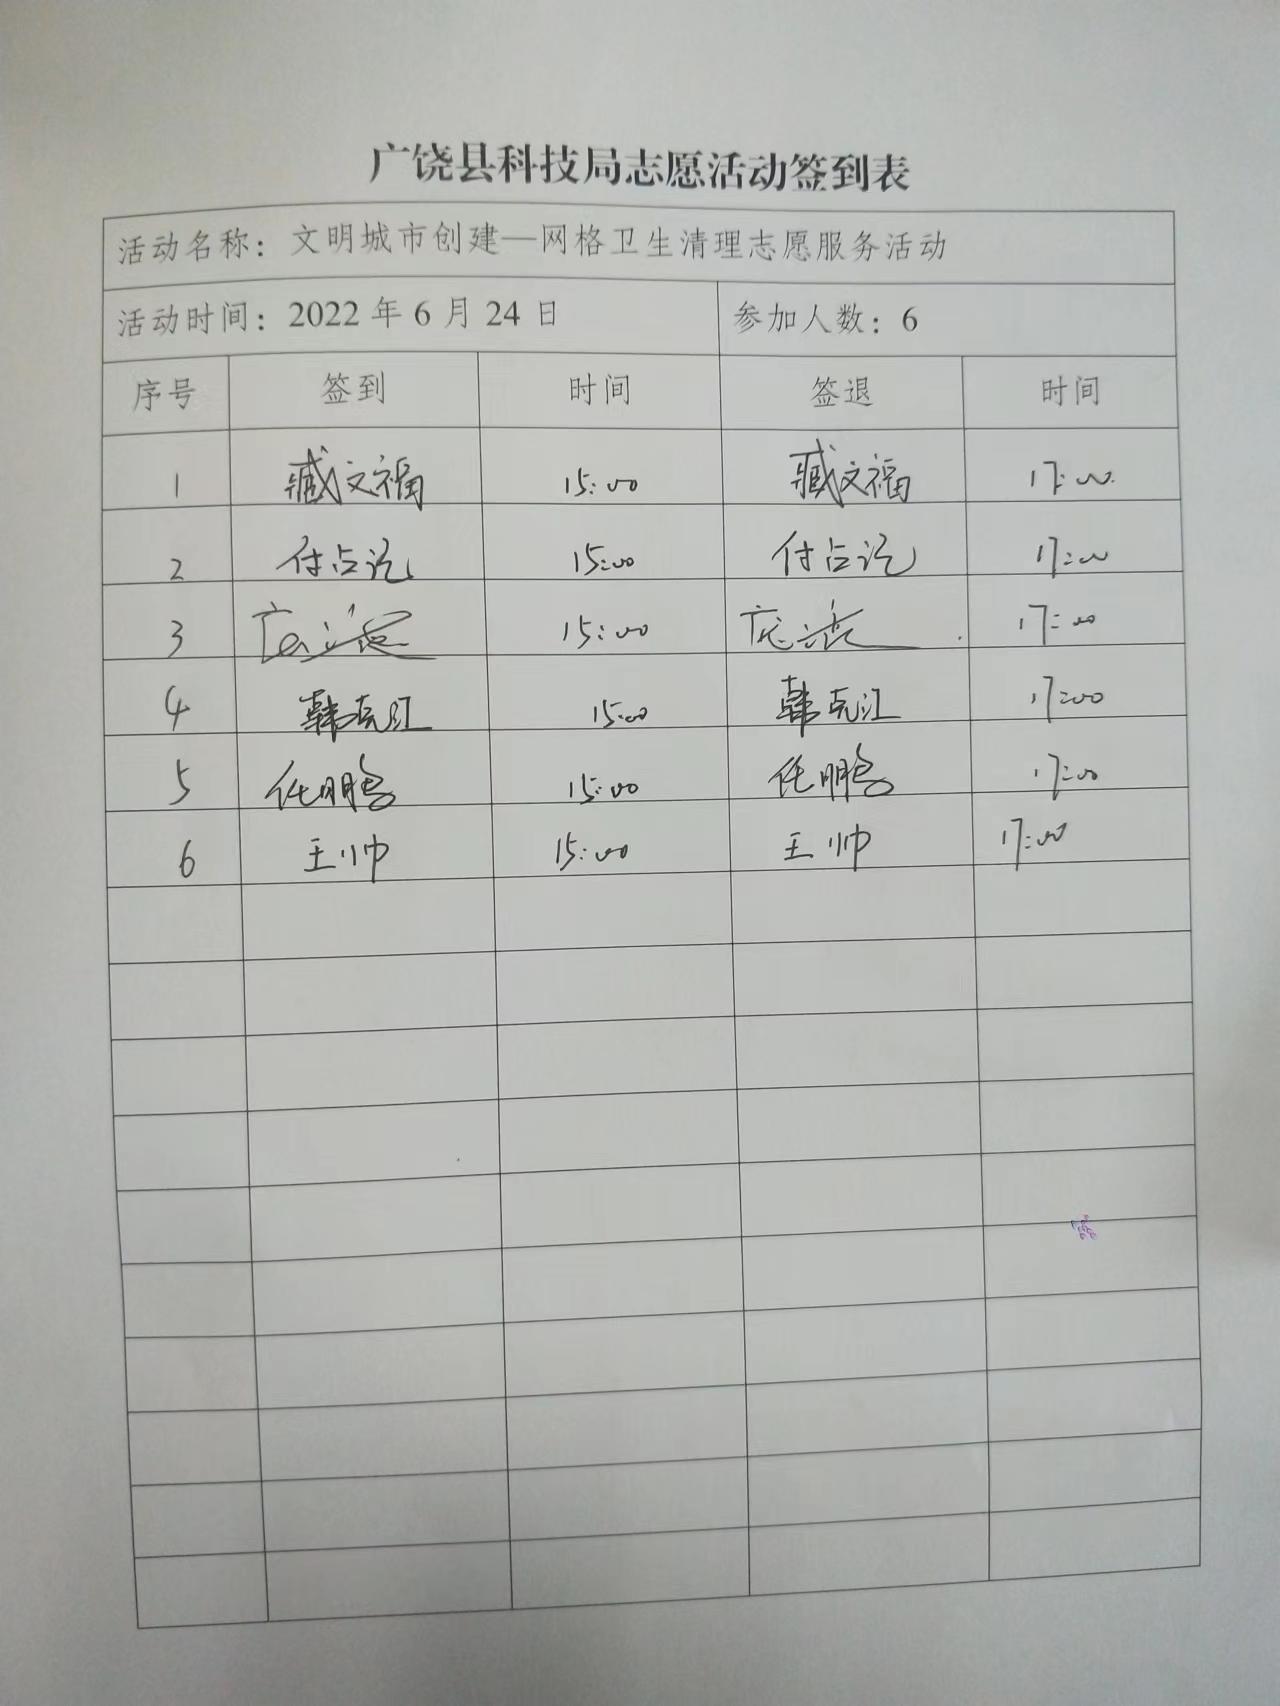 广饶县科技局志愿活动签到表
活动名称：文明城市创建—网格卫生清理志愿服务活动
活动时间：2022 年 6 月 24 日 参加人数：6
序号 签到 时间 签退 时间
1 臧文福 15:00 臧文福 17:00
2 付占 15:00 付占 17:00
3 15:00 17:00
4 韩克江 15:00 韩克江 17:00
5 任鹏 15:00 任鹏 17:00
6 王帅 15:00 王帅 17:00